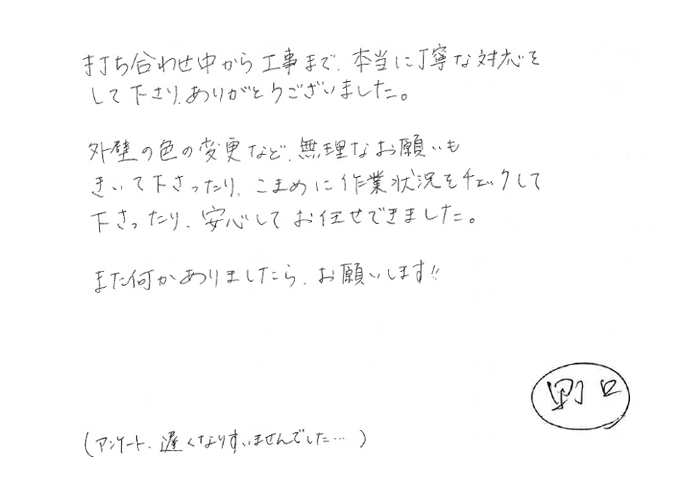 打ち合わせ中から工事まで、本当に丁寧な対応を
して下さり、ありがとうございました。
外壁の色の変更など、無理なお願いも
きいて下さったり、こまめに作業状況をチェックして
下さったり、安心してお任せできました。
また何かありましたら、お願いします!!
野口
(アンケート、遅くなりすいませんでした…)